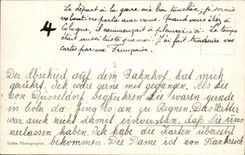 Le départ à la gare m'a bien touchée, je serais
volontiers partie avec vous. Quand vous étiez à
Cologne, il commençait à pleuvoir. Le temps
était aussi triste que moi. J'ai fait traduire vos
cartes par une Française.
4
Der Abschied auf dem Bahnhof hat mich
gerührt. Ich wäre gerne mit gefahren. Als Sie
von Düsseldorf wegfuhren. Sie waren gerade
in Cöln da fing es an zu Regnen. Das Wetter
war auch nicht damit einverstanden, daß Sie uns
verlassen haben. Ich habe die Karten übersetzt
bekommen. Die Dame ist von Frankreich